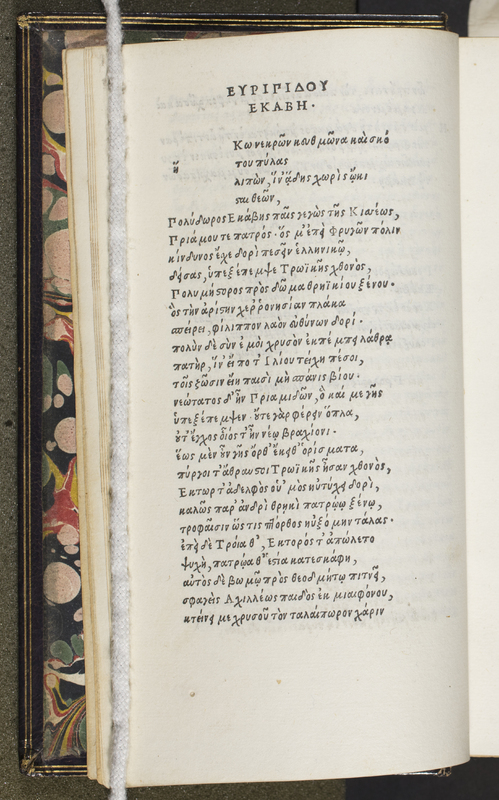 ΕΥΡΙΠΙΔΟΥ
ΕΚΑΒΗ.
Κω νεκρῶν κευθμῶνα καὶ σκό
ἥ
του πύλας
λιπὼν, ἵν' ᾅδης χωρὶς ᾤκι
σαι θεῶν,
Πολύδωρος Ἑκάβης παῖς γεγὼς τῆς Κισέως,
Πριάμου τε πατρός. ὅς μ' ἐπεὶ Φρυγῶν πόλιν
κίνδυνος ἔσχε δορὶ πεσεῖν ἑλληνικῷ,
δείσας, ὑπεξέπεμψε Τρωϊκῆς χθονὸς,
Πολυμήστορος πρὸς δῶμα θρηϊκίου ξένου.
ὃς τὴν ἀρίστην χερρονησίαν πλάκα
σπείρει, φίλιππον λαὸν εὐθύνων δορί.
πολὺν δὲ σὺν ἐμοὶ χρυσὸν ἐκπέμπει λάθρα
πατὴρ, ἵν' εἴ ποτ' Ἰλίου τείχη πέσοι,
τοῖς ζῶσιν εἴη παισὶ μὴ σπάνις βίου.
νεώτατος δ' ἦν Πριαμιδῶν, ὃ καί με γῆς
ὑπεξέπεμψεν. οὔτε γὰρ φέρειν ὅπλα,
οὔτ' ἔγχος οἷός τ' ἦν νέῳ βραχίονι.
ἕως μὲν οὖν γῆς ὀρθ' ἔκειθ' ὁρίσματα,
πύργοι τ' ἄθραυστοι Τρωϊκῆς ἦσαν χθονὸς,
Ἕκτωρ τ' ἀδελφὸς οὑμὸς ηὐτύχει δορὶ,
καλῶς παρ' ἀνδρὶ θρηκὶ πατρῴῳ ξένῳ,
τροφαῖσιν ὥς τις πτόρθος ηὐξόμην τάλας.
ἐπεὶ δὲ Τροία θ', Ἕκτορός τ' ἀπώλετο
ψυχὴ, πατρῴα θ' ἑστία κατεσκάφη,
αὐτὸς δὲ βωμῷ πρὸς θεοδμήτῳ πιτνεῖ,
σφαγεὶς Ἀχιλλέως παιδὸς ἐκ μιαιφόνου,
κτείνει με χρυσοῦ τὸν ταλαίπωρον χάριν